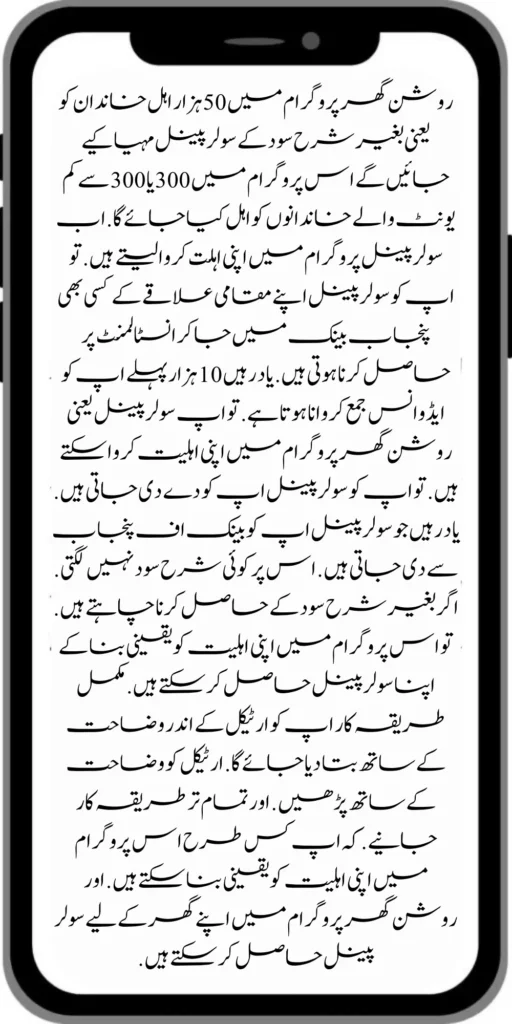 روشن گھر پروگرام میں 50 ہزار اہل خاندان کو
یعنی بغیر شرح سود کے سولر پینل مہیا کیے
جائیں گے اس پروگرام میں 300 یا 300 سے کم
یونٹ والے خاندانوں کو اہل کیا جائے گا. اب
سولر پینل پروگرام میں اپنی اہلت کروا لیتے ہیں. تو
اپ کو سولر پینل اپنے مقامی علاقے کے کسی بھی
پنجاب بینک میں جا کر انسٹالمنٹ پر
حاصل کرنا ہوتی ہیں. یاد رہیں 10 ہزار پہلے اپ کو
ایڈوانس جمع کروانا ہوتا ہے. تو اپ سولر پینل یعنی
روشن گھر پروگرام میں اپنی اہلیت کروا سکتے
ہیں. تو اپ کو سولر پینل اپ کو دے دی جاتی ہیں.
یاد رہیں جو سولر پینل اپ کو بینک اف پنجاب
سے دی جاتی ہیں. اس پر کوئی شرح سود نہیں لگتی.
اگر بغیر شرح سود کے حاصل کرنا چاہتے ہیں.
تو اس پروگرام میں اپنی اہلیت کو یقینی بنا کے
اپنا سولر پینل حاصل کر سکتے ہیں. مکمل
طریقہ کار اپ کو ارٹیکل کے اندر وضاحت
کے ساتھ بتا دیا جائے گا. ارٹیکل کو وضاحت
کے ساتھ پڑھیں. اور تمام تر طریقہ کار
جانیے. کہ اپ کس طرح اس پروگرام
میں اپنی اہلیت کو یقینی بنا سکتے ہیں. اور
روشن گھر پروگرام میں اپنے گھر کے لیے سولر
پینل حاصل کر سکتے ہیں.